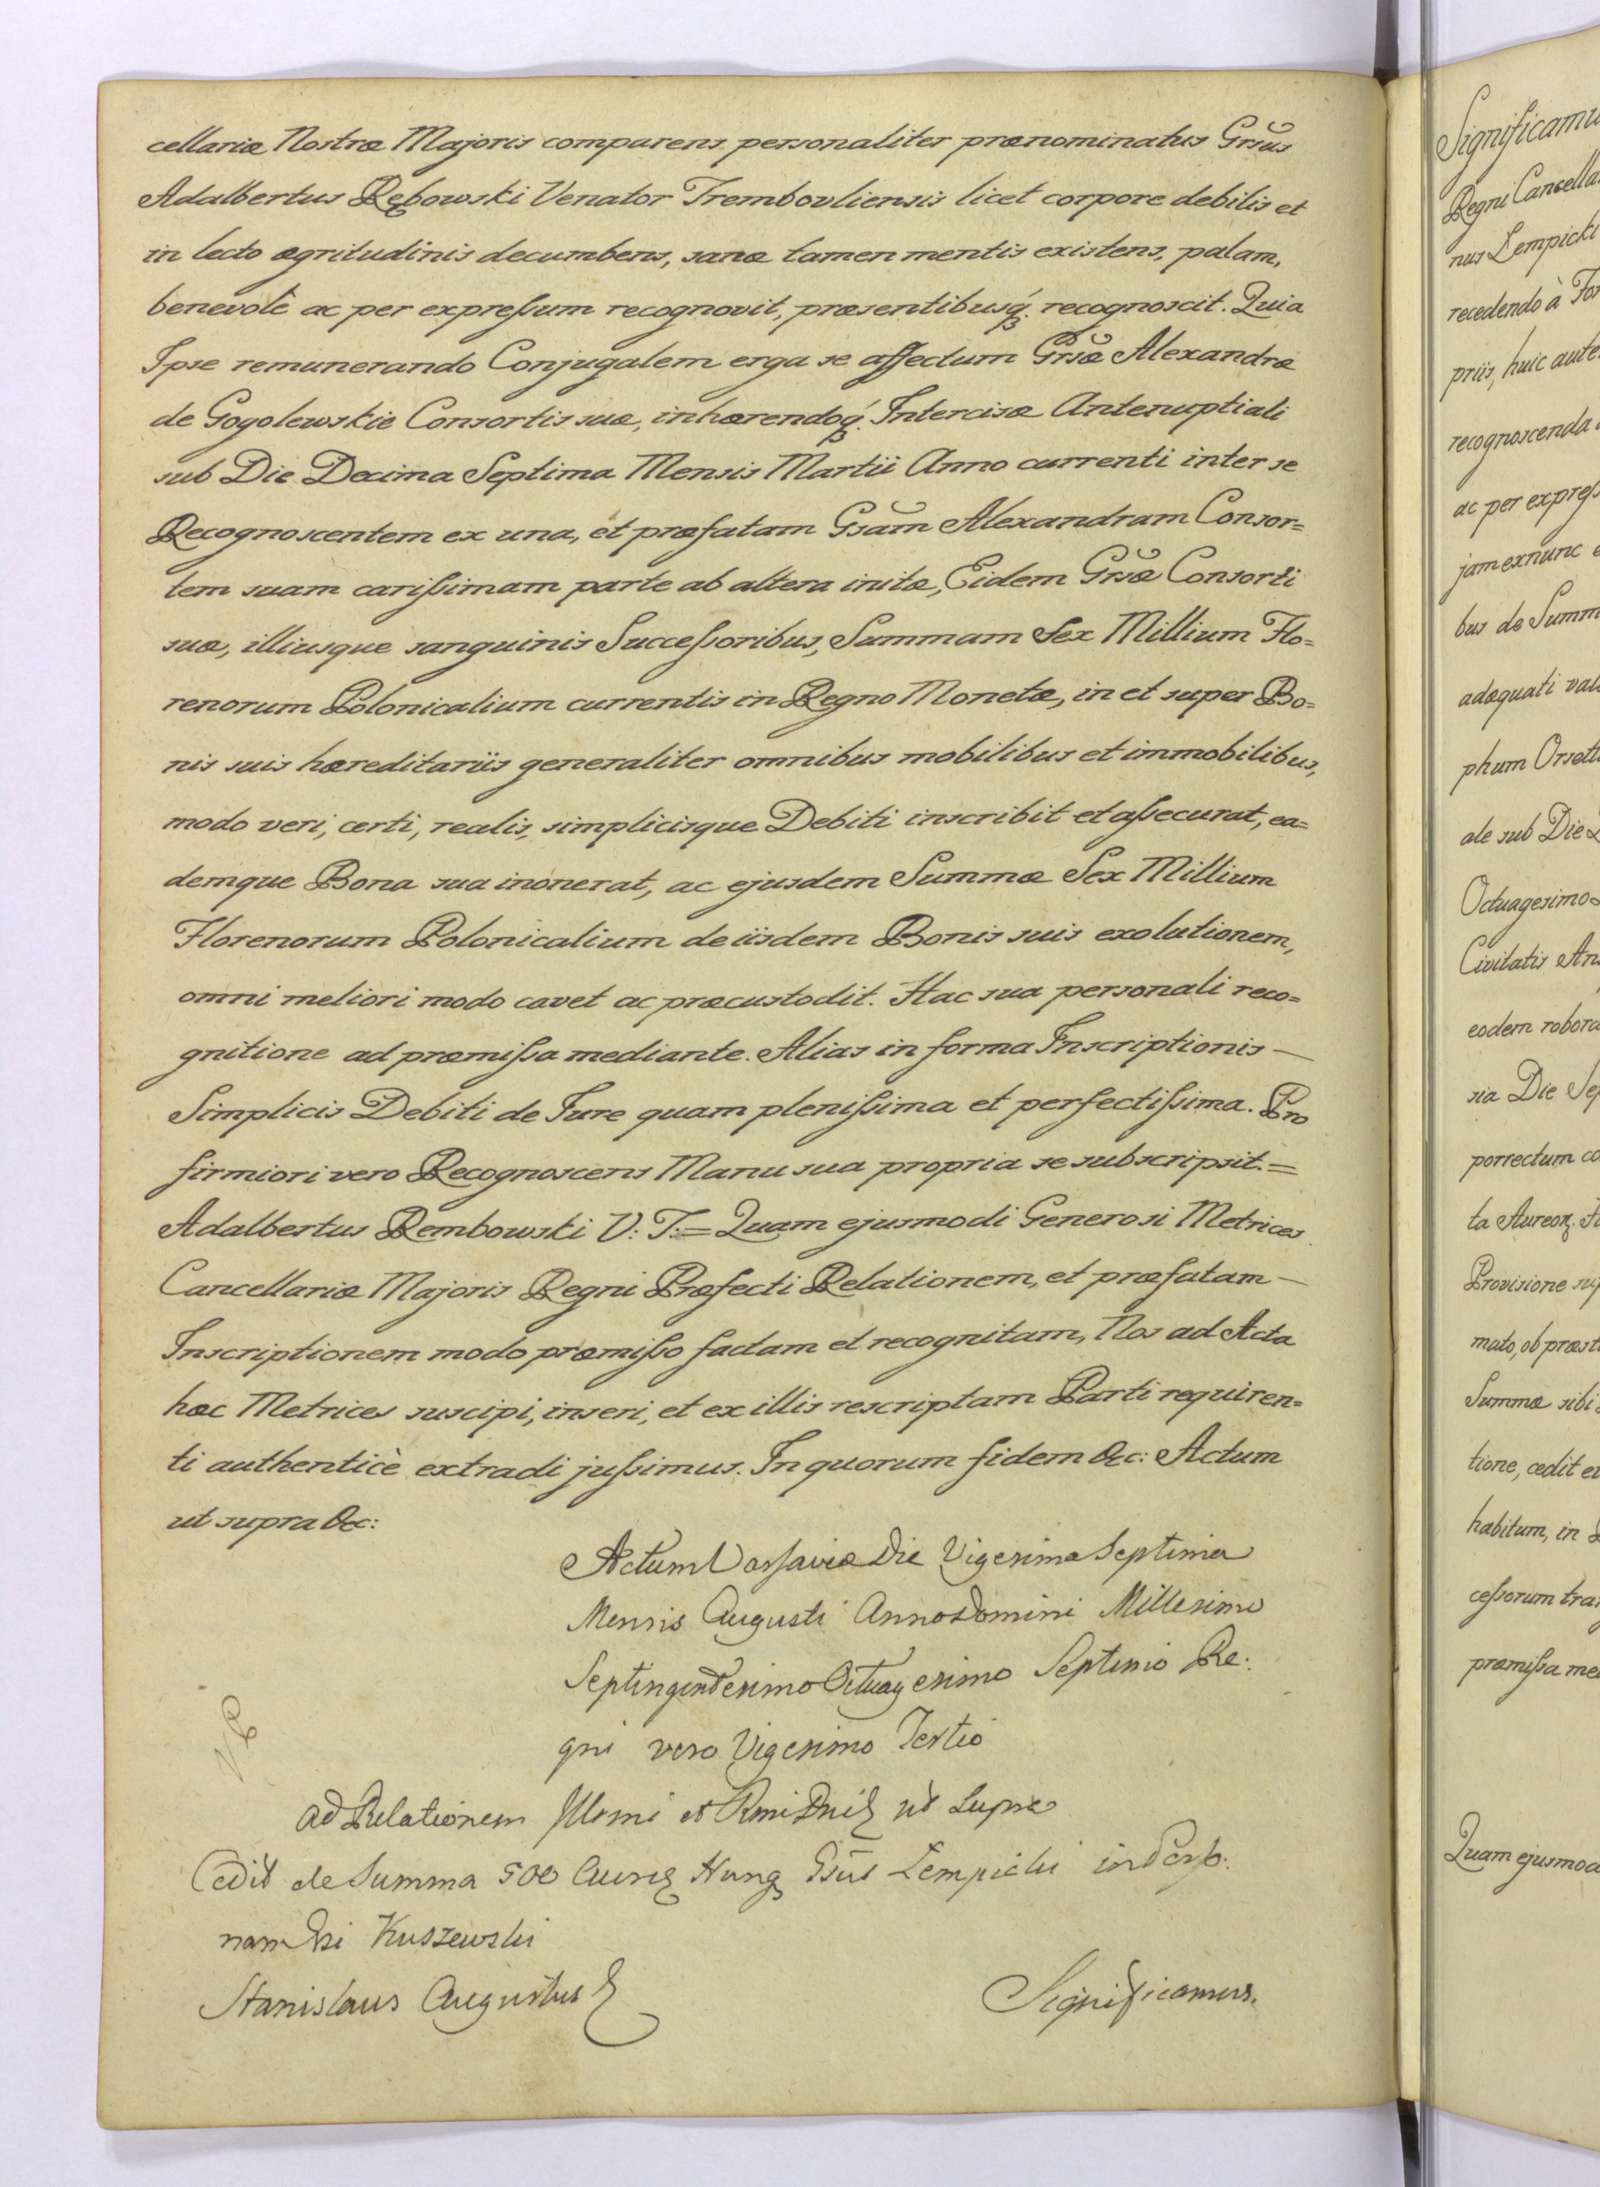 cellariæ Nostræ Majoris comparens personaliter prænominatus Grsus
Adalbertus Rębowski Venator Trembovliensis licet corpore debilis et
in lecto ægritudinis decumbens, sanæ tamen mentis existens, palam,
benevolè ac per expreſsum recognovit, præsentibusq́ꝫ recognoscit. Quia
Ipse remunerando Conjugalem erga se affectum Grsæ Alexandræ
de Gogolewskie Consortis suæ, inhærendoq́ꝫ Intercisæ Antenuptiali
sub Die Decima Septima Mensis Martii Anno currenti inter se
Recognoscentem ex una, et præfatam Gsam Alexandram Consor=
tem suam cariſsimam parte ab altera initæ, Eidem Grsæ Consorti
suæ, illiusque sanguinis Succeſsoribus, Summam Sex Millium Flo=
renorum Polonicalium currentis in Regno Monetæ, in et super Bo=
nis suis hæreditariis generaliter omnibus mobilibus et immobilibus,
modo veri, certi, realis, simplicisque Debiti inscribit et aſsecurat, ea=
demque Bona sua inonerat, ac ejusdem Summæ Sex Millium
Florenorum Polonicalium de iisdem Bonis suis exolutionem,
omni meliori modo cavet ac præcustodit. Hac sua personali reco=
gnitione ad præmiſsa mediante. Alias in forma Inscriptionis —
Simplicis Debiti de Jure quam pleniſsima et perfectiſsima. Pro
firmiori vero Recognoscens Manu sua propria se subscripsit. =
Adalbertus Rembowski V: T: = Quam ejusmodi Generosi Metrices
Cancellariæ Majoris Regni Præfecti Relationem, et præfatam —
Inscriptionem modo præmiſso factam et recognitam, Nos ad Acta
hæc Metrices suscipi, inseri, et ex illis rescriptam Parti requiren=
ti authenticè extradi juſsimus. In quorum fidem &c: Actum
ut supra &c:
Actum Varsaviæ Die Vigesima Septima
Mensis Augusti Anno Domini Millesimo
Septingentesimo Octuagesimo Septimo Re:
gni vero Vigesimo Tertio
ad Relationem Illsmi et Rmi Dni ut Supra
Cedit de Summa 500 Hung Gsus Łempicki in Perso:
nam Kuszewski
Stanislaus Augustus
Significamus.
Significamu
Regni Cancella
nus Łempicki
recedendo à For
priis, huic aute
recognoscenda
ac per expreſs
jam exnunc e
bus de Summ
adæquati val
phum Orsett
ale sub Die
Octuagesimo
Civitatis An
eodem robora
ria Die Sep
porrectum co
ta Aureoꝝ
Provisione su
mato, ob præst
Summæ sibi
tione, cedit et
habitum, in
ceſsorum tra
præmiſsa me
Quam ejusmod